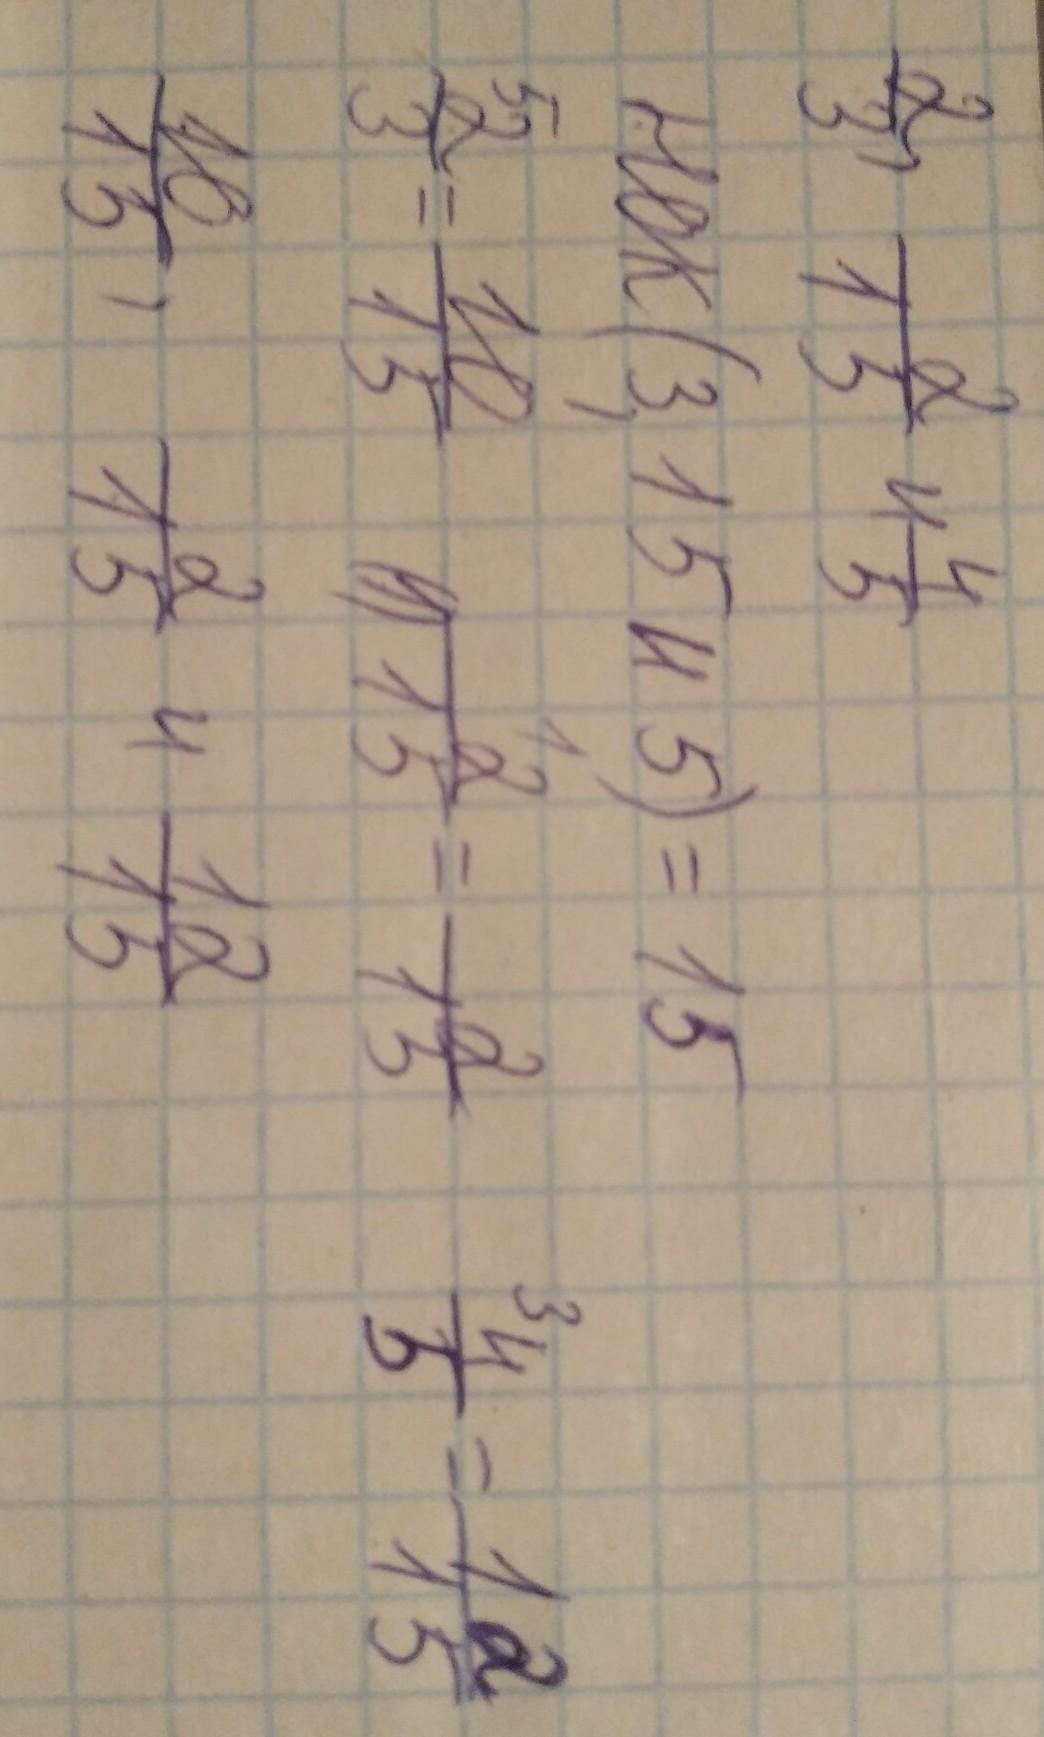 2/3, 2/15 и 4/5
НОК (3, 15 и 5) = 15
2/3 ⁵ = 10/15 2/15 ¹ = 2/15 4/5 ³ = 12/15
10/15, 2/15 и 12/15